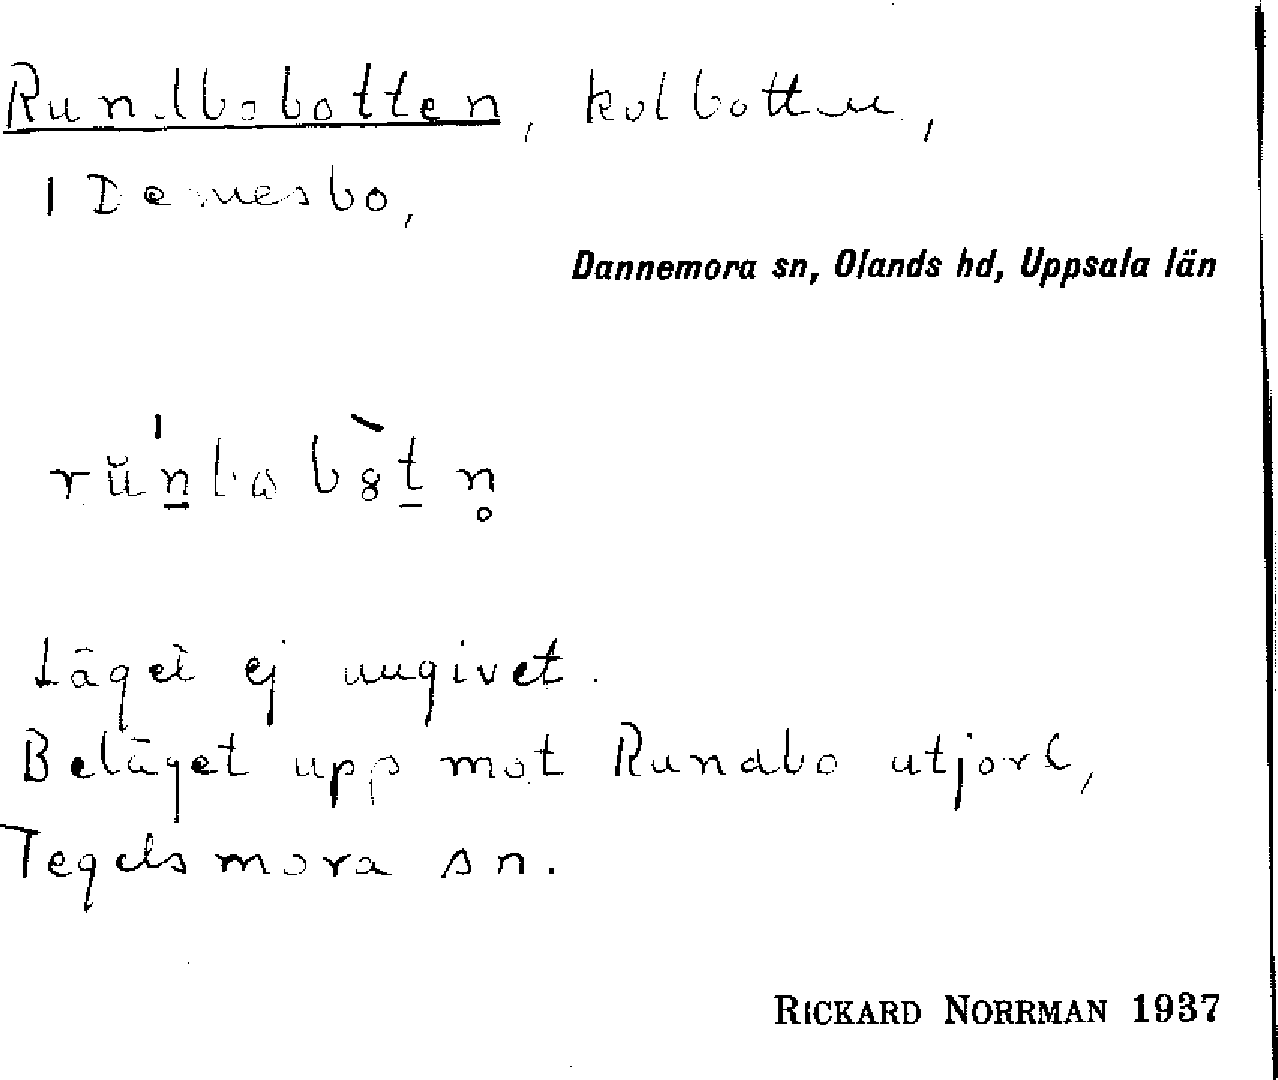 Rundbobotten, kolbotten,
i Demesbo,
Dannemora sn, Olands hd, Uppsala län
Läget ej angivet.
Beläget upp mot Rundbo utjord,
Tegelsmora sn.
RICKARD NORRMAN 1937